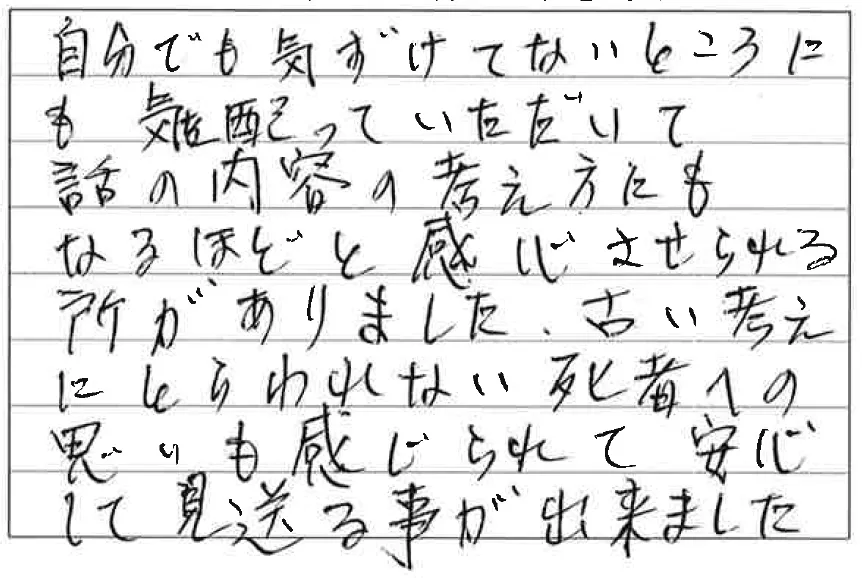 自分でも気ずけてないところに
も気配っていただいて
話の内容の考え方にも
なるほどと感じさせられる
所がありました、古い考え
にとらわれない死者への
思いも感じられて安心
して見送る事が出来ました